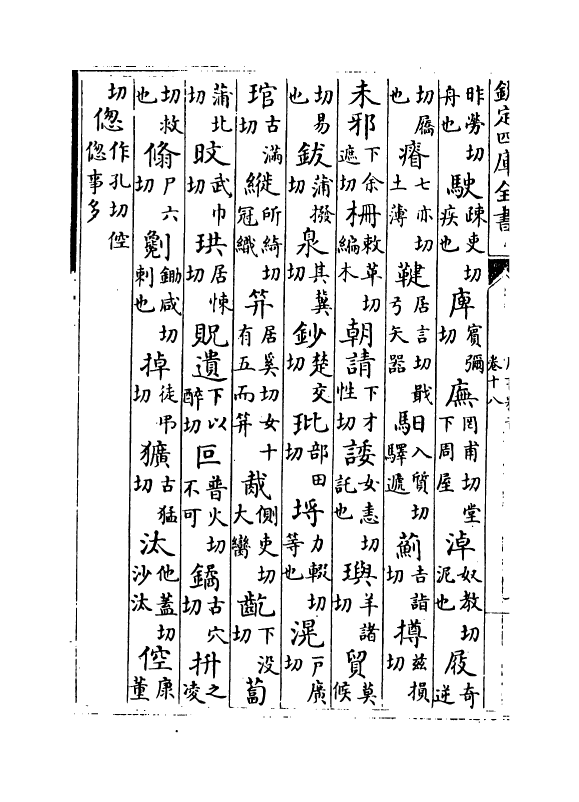 欽定四庫全書
卷十八
昨勞切舟也駛疎吏切疾也庳賓彌切廡罔甫切堂下周屋淖奴教切泥也屐奇逆
切屩也瘠七亦切土薄鞬居言切戢弓矢器馹入質切驛遞薊吉詣切撙兹損切
未邪下余遮切柵敕革切編木朝請下才性切諉女恚切託也璵羊諸切貿莫候
切易也鈸蒲撥切臮其冀切鈔楚交切玭部田切埒力輟切等也滉戸廣切
琯古滿切縰所綺切冠織笄居奚切女十有五而笄胾側吏切大臠齕下没切蔔
蒲北切旼武巾切珙居悚切貺遺下以醉切叵普火切不可鐍古穴切抍之凌
切救也翛尸六切劖鋤咸切刺也掉徒弔切獷古猛切汰他蓋切沙汰倥康董
切偬作孔切倥偬事多